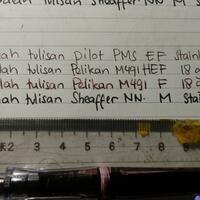 tulisan Sheaffer NN M S
lah tulisan pilot PMS EF Stainl
lah tulisan Pelikan M491 HEF 18
lah tulisan Pelikan M491 F 18
lah tulisan Sheaffer NN. M Stai
2 3 4 5 6 7 8 9